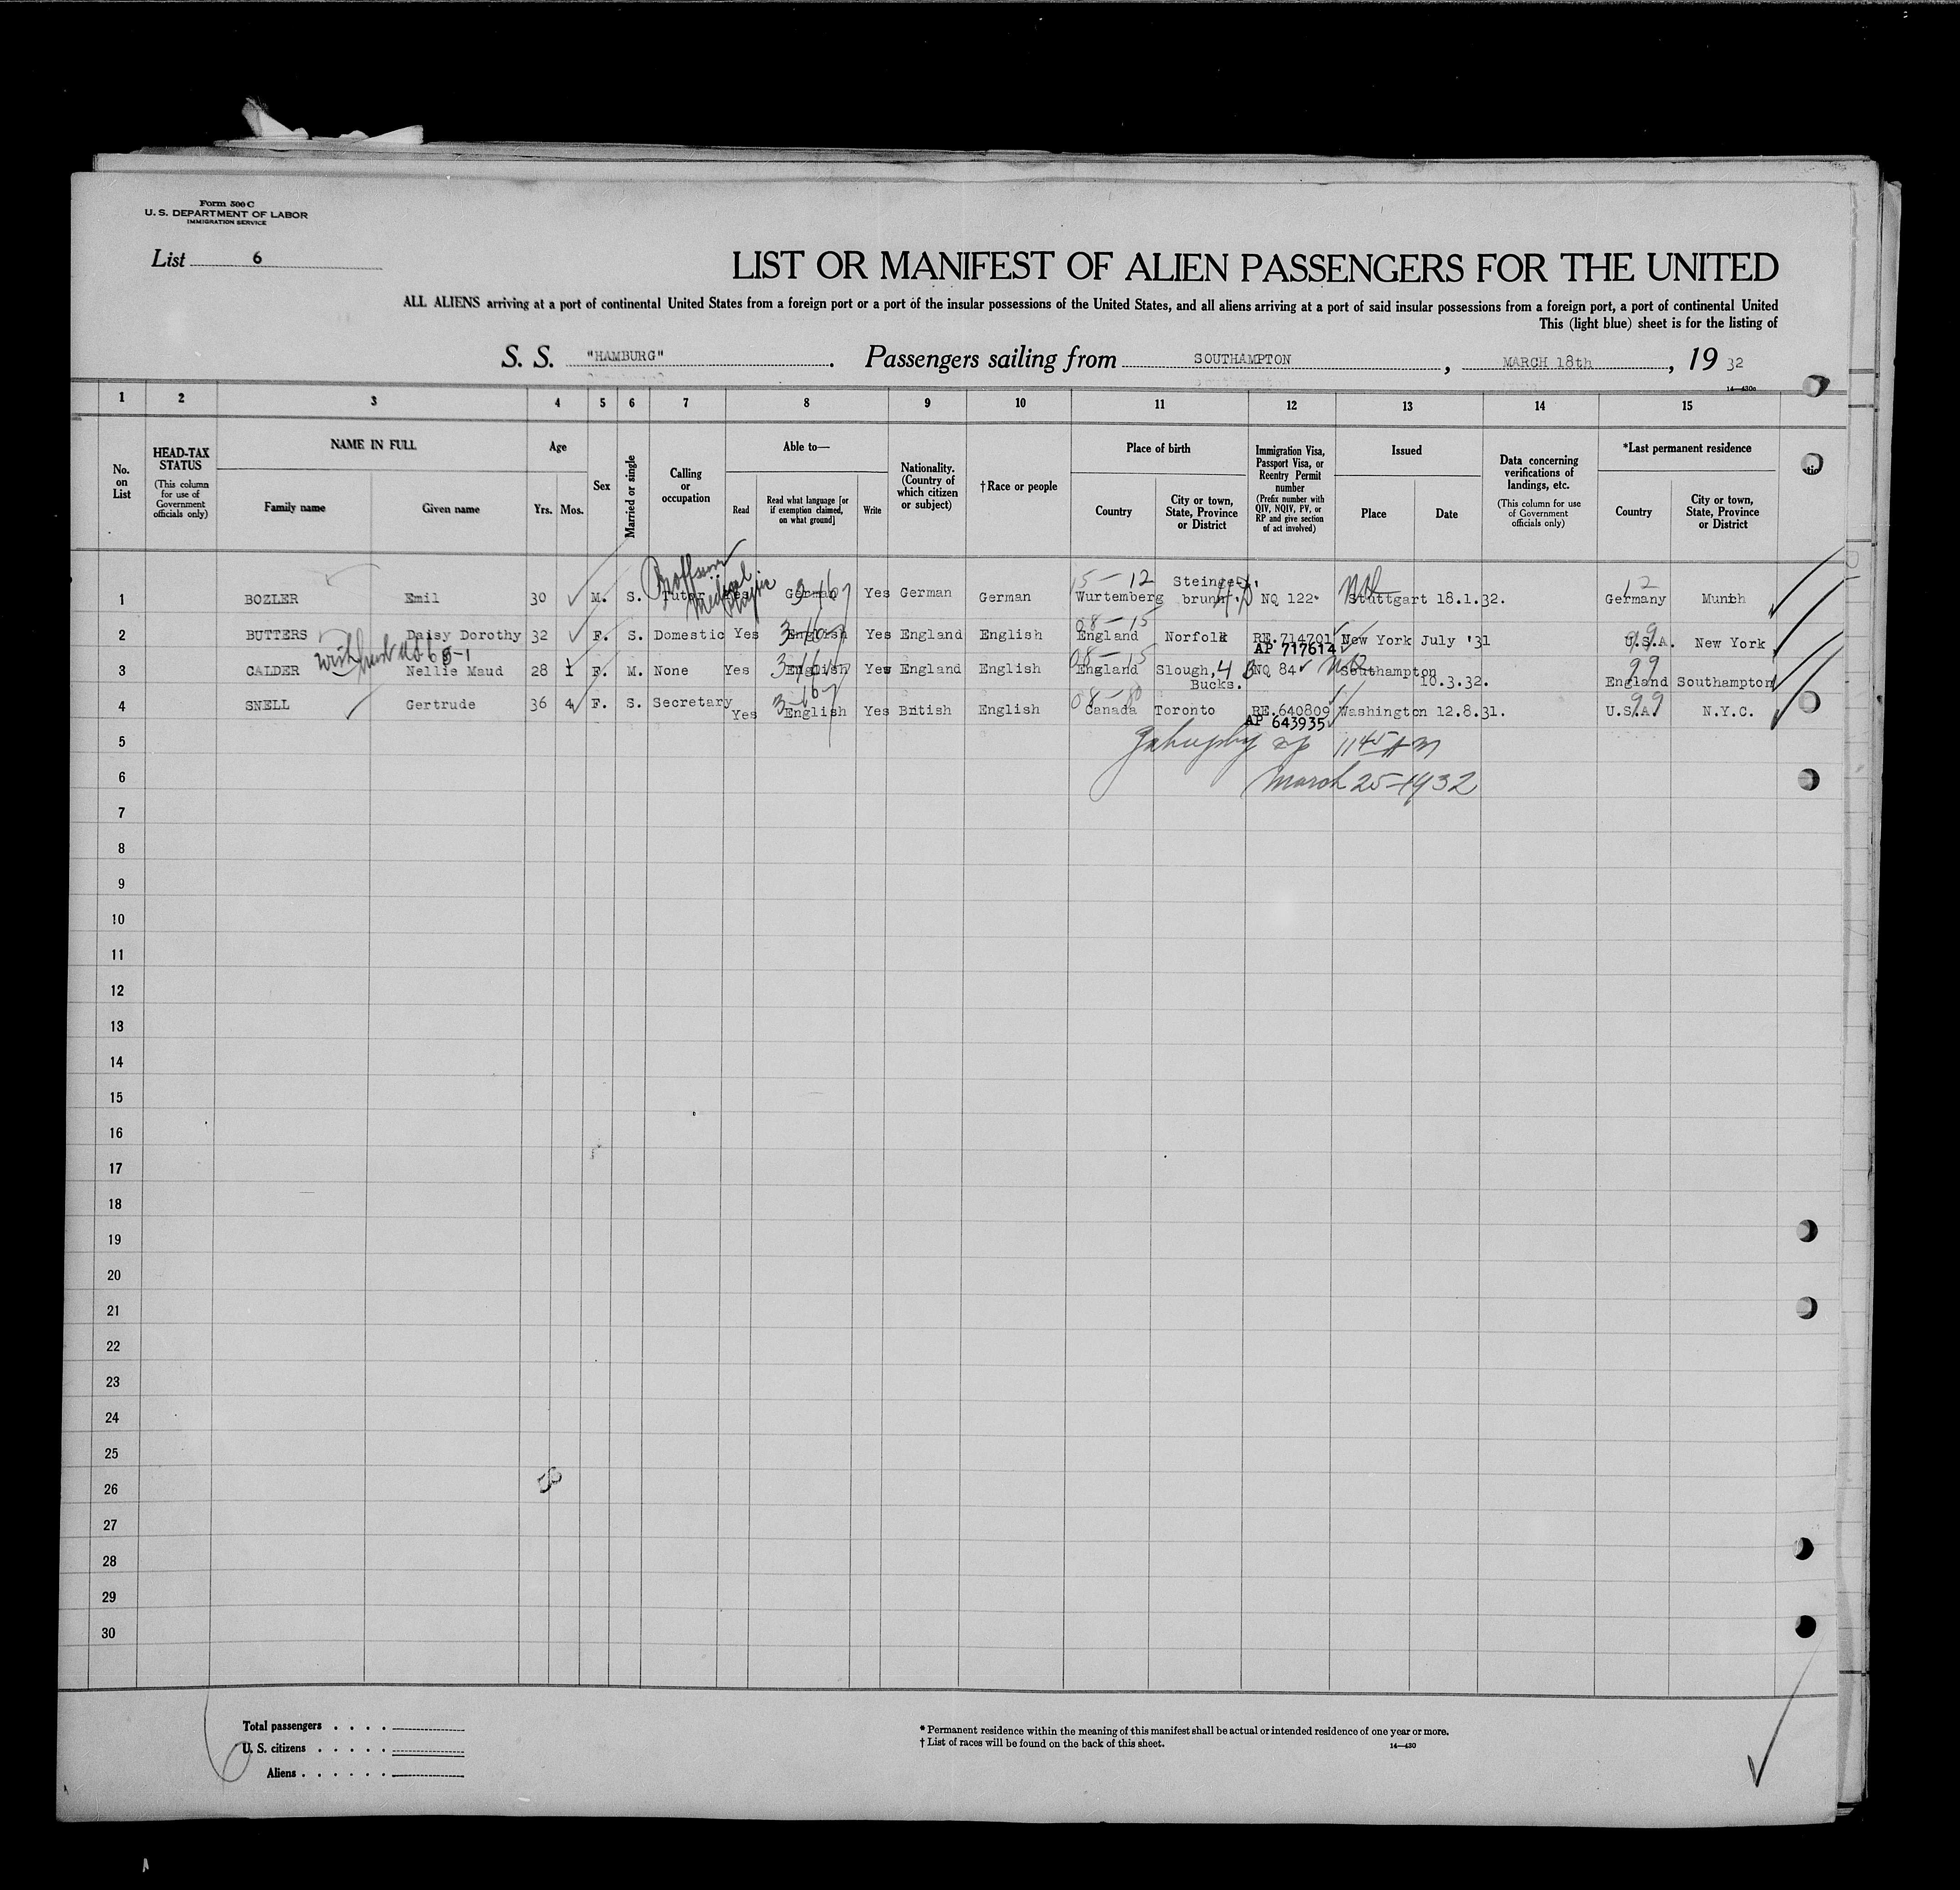 Form 500 C
U. S. DEPARTMENT OF LABOR
IMMIGRATION SERVICE
List 6
LIST OR MANIFEST OF ALIEN PASSENGERS FOR THE UNITED
ALL ALIENS arriving at a port of continental United States from a foreign port or a port of the insular possessions of the United States, and all aliens arriving at a port of said insular possessions from a foreign port, a port of continental United
This (light blue) sheet is for the listing of
S. S. "HAMBURG". Passengers sailing from SOUTHAMPTON, MARCH 18th, 19 32
14—430c
1 2 3 4 5 6 7 8 9 10 11 12 13 14 15
No. on List
HEAD-TAX STATUS (This column for use of Government officials only)
NAME IN FULL
Family name Given name
Age
Yrs. Mos.
Sex
Married or single
Calling or occupation
Able to—
Read Read what language [or if exemption claimed, on what ground] Write
Nationality. (Country of which citizen or subject)
†Race or people
Place of birth
Country City or town, State, Province or District
Immigration Visa, Passport Visa, or Reentry Permit number (Prefix number with QIV, NQIV, PV, or RP and give section of act involved)
Issued
Place Date
Data concerning verifications of landings, etc. (This column for use of Government officials only)
*Last permanent residence
Country City or town, State, Province or District
15-12 12
1 BOZLER Emil 30 M. S. Tutor Yes German Yes German German Wurtemberg brunn NQ 122 Stuttgart 18.1.32. Germany Munich
08-15
2 BUTTERS Daisy Dorothy 32 F. S. Domestic Yes English Yes England English England Norfolk RE.714701 New York July '31 U.S.A. New York
AP 717614
08-15 99
3 CALDER Nellie Maud 28 1 F. M. None Yes English Yes England English England Slough, Bucks. NQ 84 Southampton 10.3.32. England Southampton
08-80 99
4 SNELL Gertrude 36 4 F. S. Secretary Yes English Yes British English Canada Toronto RE.640809 Washington 12.8.31. U.S.A. N.Y.C.
AP 643935
5 1145 AM
6 March 25-1932
7
8
9
10
11
12
13
14
15
16
17
18
19
20
21
22
23
24
25
26
27
28
29
30
Total passengers . . . .
U. S. citizens . . . . .
Aliens . . . . . .
* Permanent residence within the meaning of this manifest shall be actual or intended residence of one year or more.
† List of races will be found on the back of this sheet.
14—430